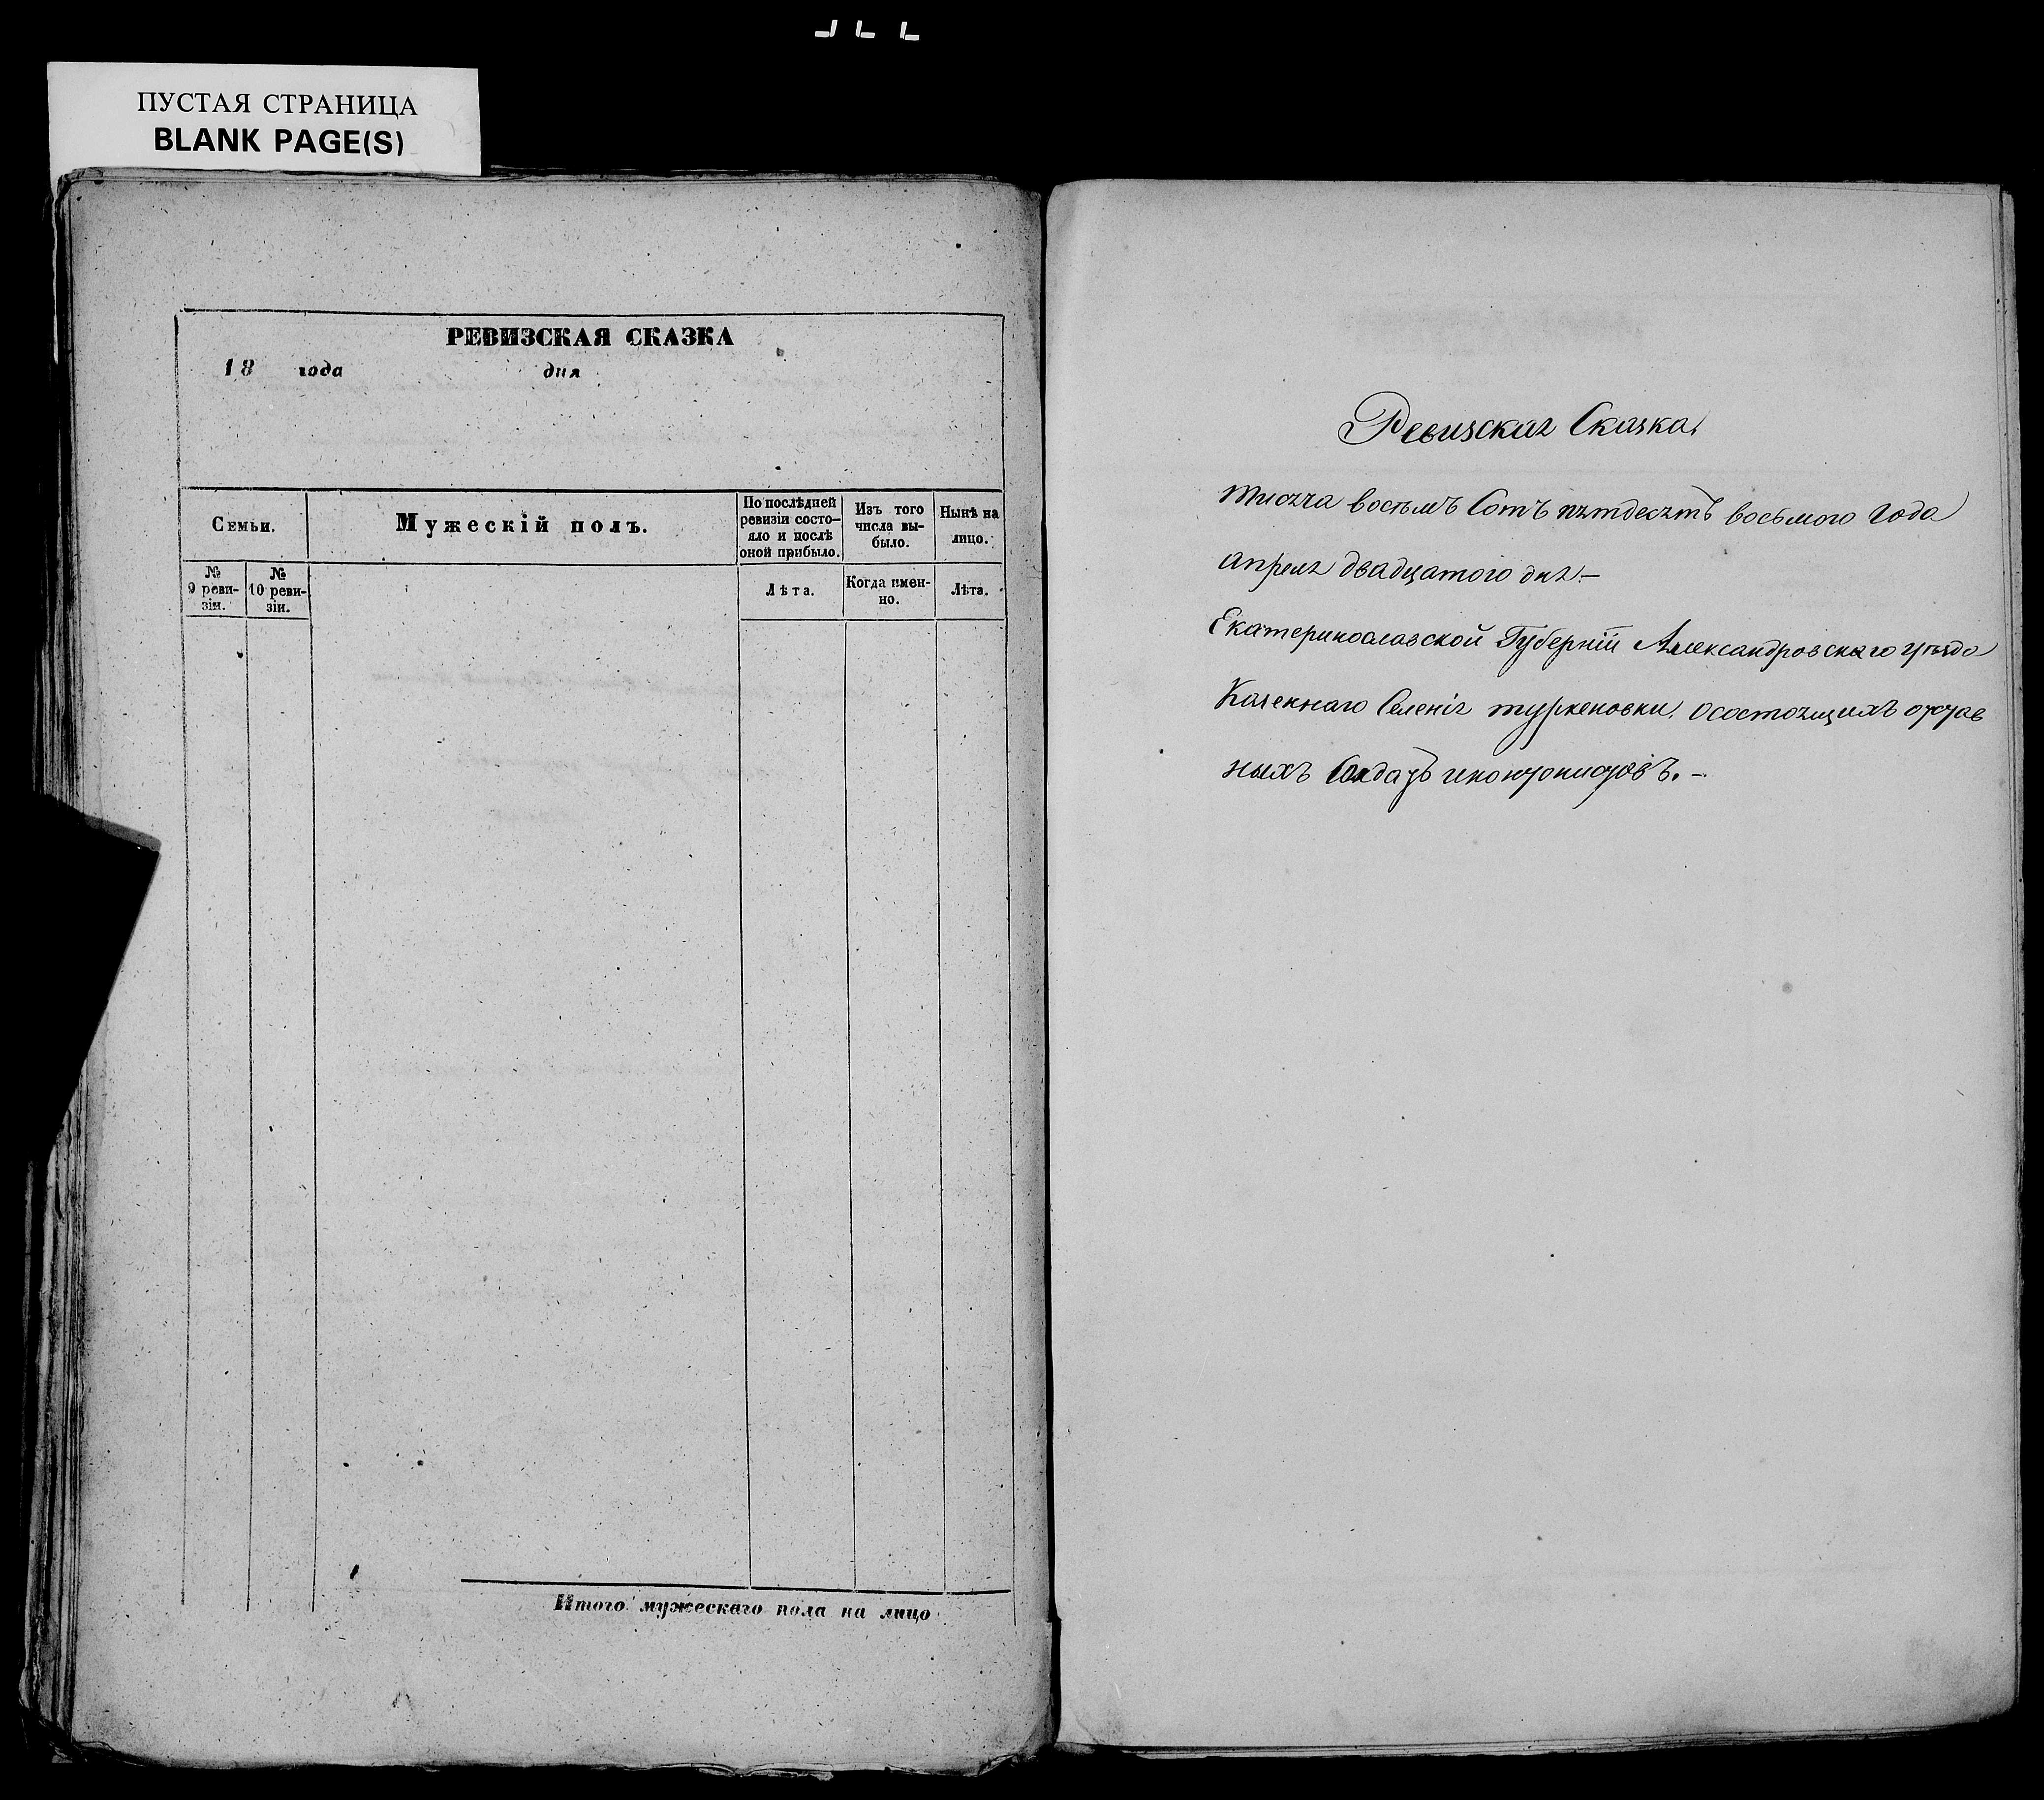 ПУСТАЯ СТРАНИЦА
BLANK PAGE(S)
РЕВИЗСКАЯ СКАЗКА
18 года дня
Семьи.
№ 9 реви-
зіи.
№ 10 реви-
зіи.
Мужескій полъ.
По послѣдней
ревизіи состо-
яло и послѣ
оной прибыло.
Лѣта.
Изъ того
числа вы-
было.
Когда имен-
но.
Нынѣ на
лицо.
Лѣта.
Итого мужескаго пола на лицо
Ревизская Сказка,
тысяча восемъ Сотъ пятдесятъ восьмого года
апреля двадцатого дня.—
Екатеринославской Губерніи Александровскаго уѣзда
Казеннаго Селенія туркеновки, осостоящихъ отстав
ныхъ Солдатъ икантонистовъ.—